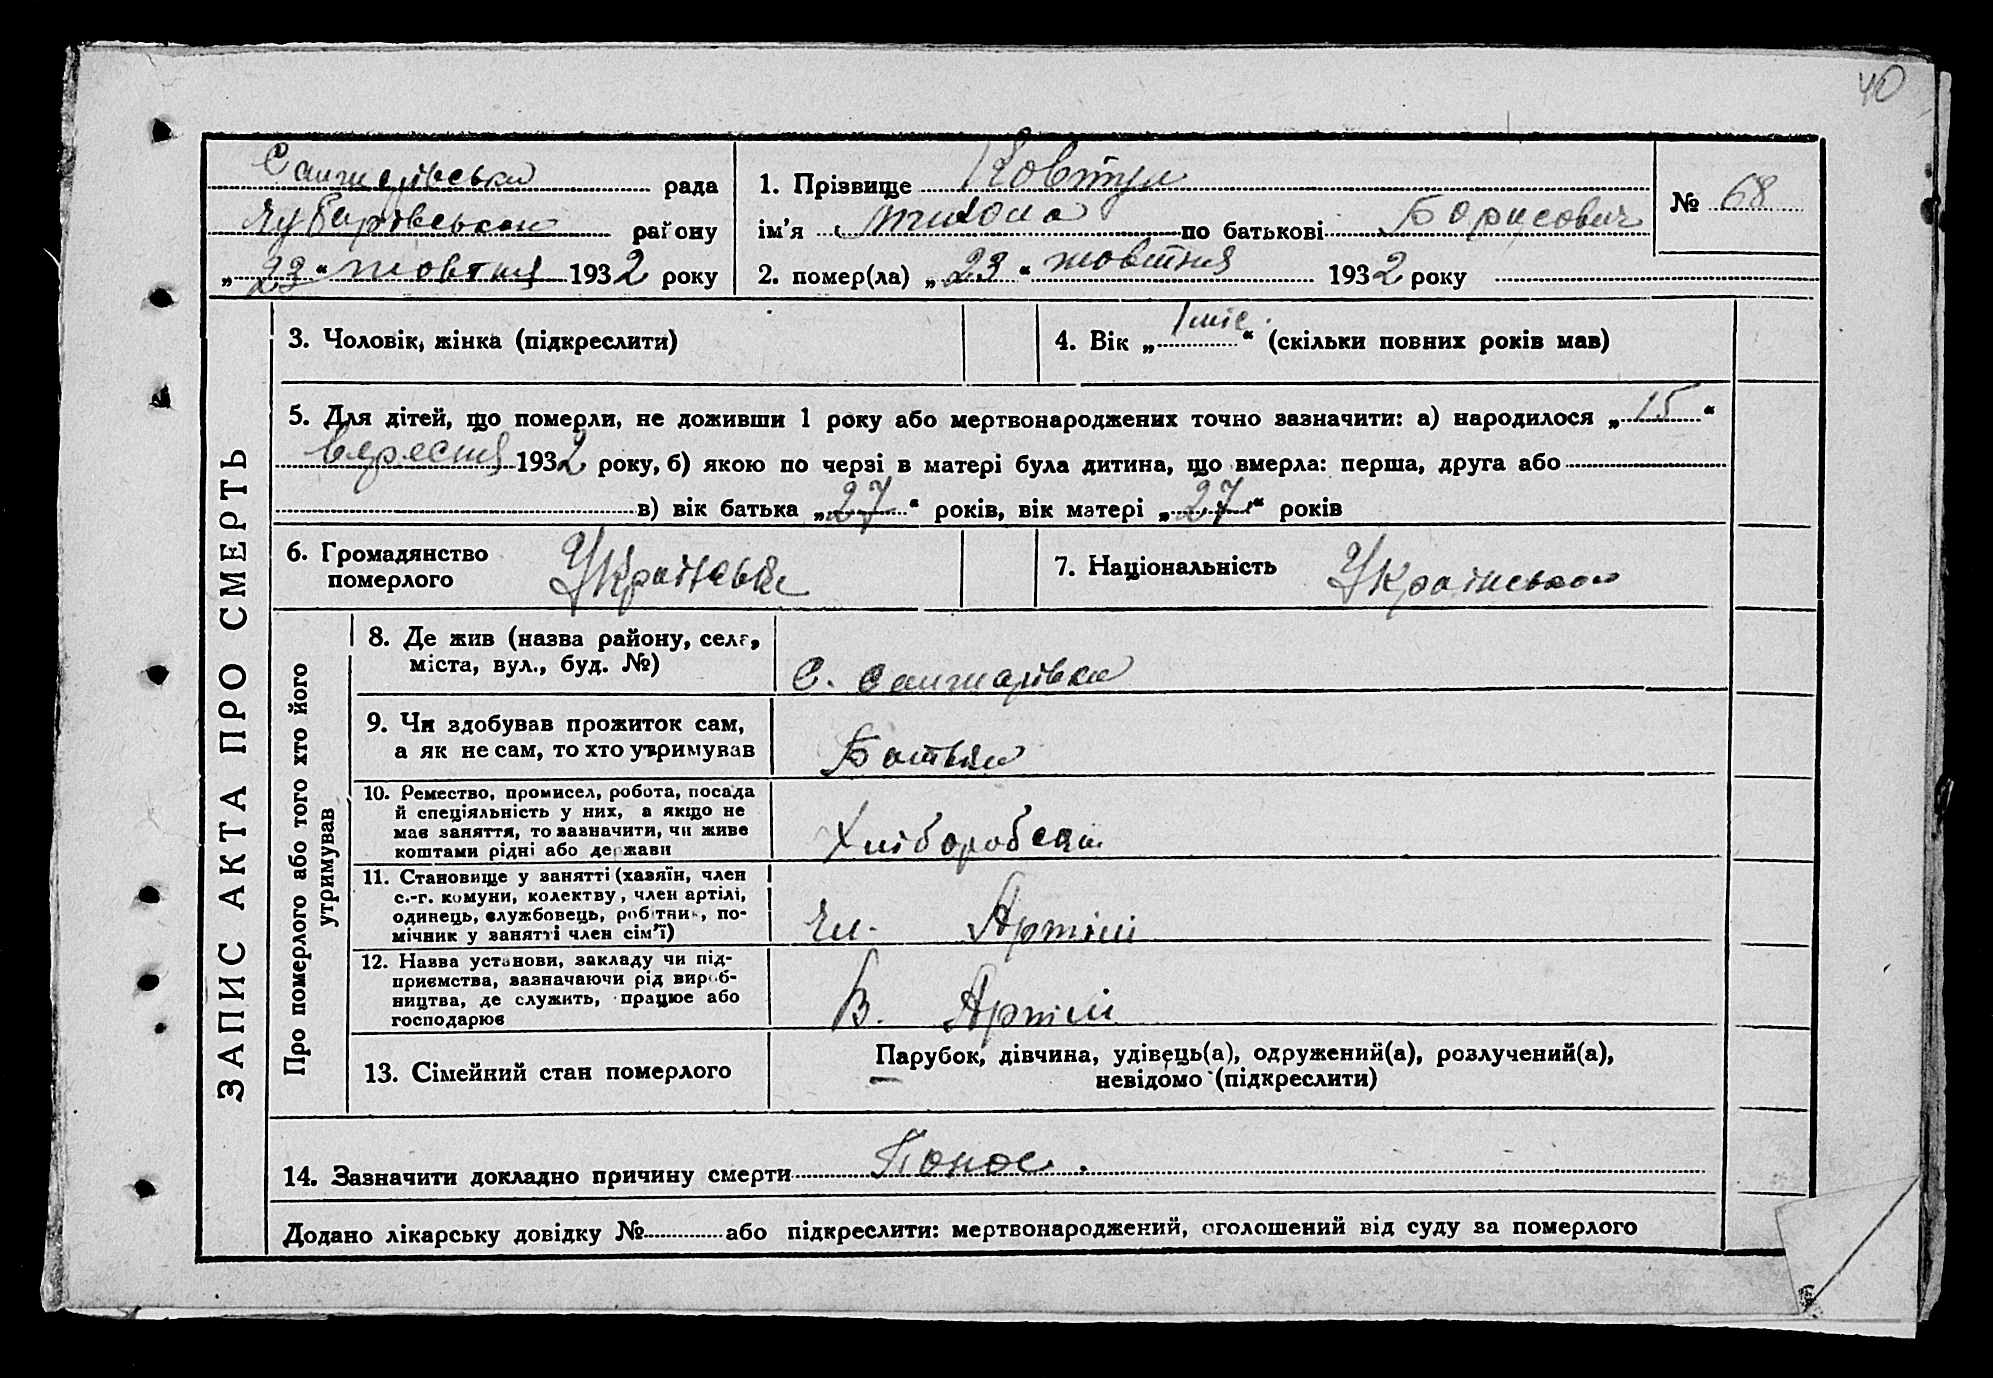 40
Санжарівська рада
Чубарівського району
„23“ жовтня 1932 року
1. Прізвище Ковтун
ім'я Микола по батькові Борисович
2. помер(ла) „23“ жовтня 1932 року
№ 68
ЗАПИС АКТА ПРО СМЕРТЬ
3. Чоловік, жінка (підкреслити)
4. Вік „1 міс.“ (скільки повних років мав)
5. Для дітей, що померли, не доживши 1 року або мертвонароджених точно зазначити: а) народилося „15“
вересня 1932 року, б) якою по черзі в матері була дитина, що вмерла: перша, друга або
в) вік батька „27“ років, вік матері „27“ років
6. Громадянство
померлого
7. Національність
Про померлого або того хто його
утримував
8. Де жив (назва району, села,
міста, вул., буд. №)
С. Санжарівка
9. Чи здобував прожиток сам,
а як не сам, то хто утримував
Батьки
10. Ремество, промисел, робота, посада
й спеціяльність у них, а якщо не
має заняття, то зазначити, чи живе
коштами рідні або держави
11. Становище у занятті (хазяїн, член
с.-г. комуни, колектву, член артілі,
одинець, службовець, робітник, по-
мічник у занятті член сім'ї)
Чл. Артілі
12. Назва установи, закладу чи під-
приємства, зазначаючи рід вироб-
ництва, де служить, працює або
господарює
В. Артілі
13. Сімейний стан померлого
Парубок, дівчина, удівець(а), одружений(а), розлучений(а),
невідомо (підкреслити)
14. Зазначити докладно причину смерти Понос.
Додано лікарську довідку № або підкреслити: мертвонароджений, оголошений від суду за померлого